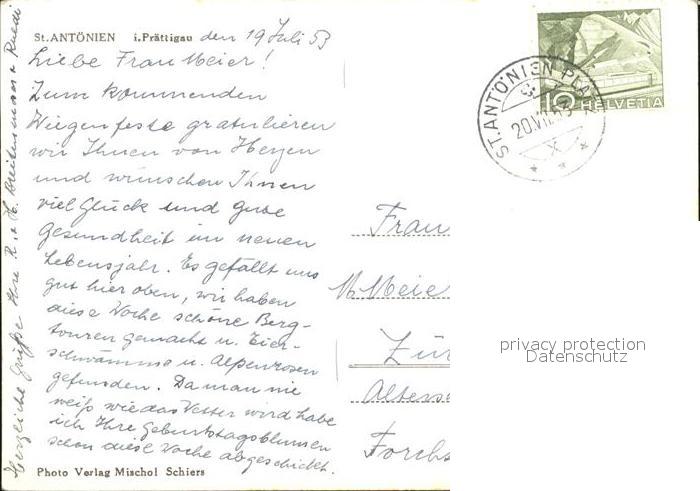 St.ANTÖNIEN i.Prättigau den 19 Juli 53
Liebe Frau Meier!
Zum kommenden
Wiegenfeste gratulieren
wir Ihnen von Herzen
und wünschen Ihnen
viel Glück und gute
Gesundheit im neuen
Lebensjahr. Es gefällt uns
gut hier oben, wir haben
diese Woche schöne Berg-
touren gemacht u. Eier-
schwämme u. Alpenrosen
gefunden. Da man nie
weiß wie das Wetter wird habe
ich Ihre Geburtstagsblumen
schon diese Woche abgeschickt.
Herzliche Grüße Ihre R. u. H. Breitenmoser u Ruedi
Photo Verlag Mischol Schiers
ST. ANTÖNIEN PLATZ
20.VII.53
X
10 HELVETIA
Frau
M. Meie
Zür
Alters
Forchs
privacy protection
Datenschutz